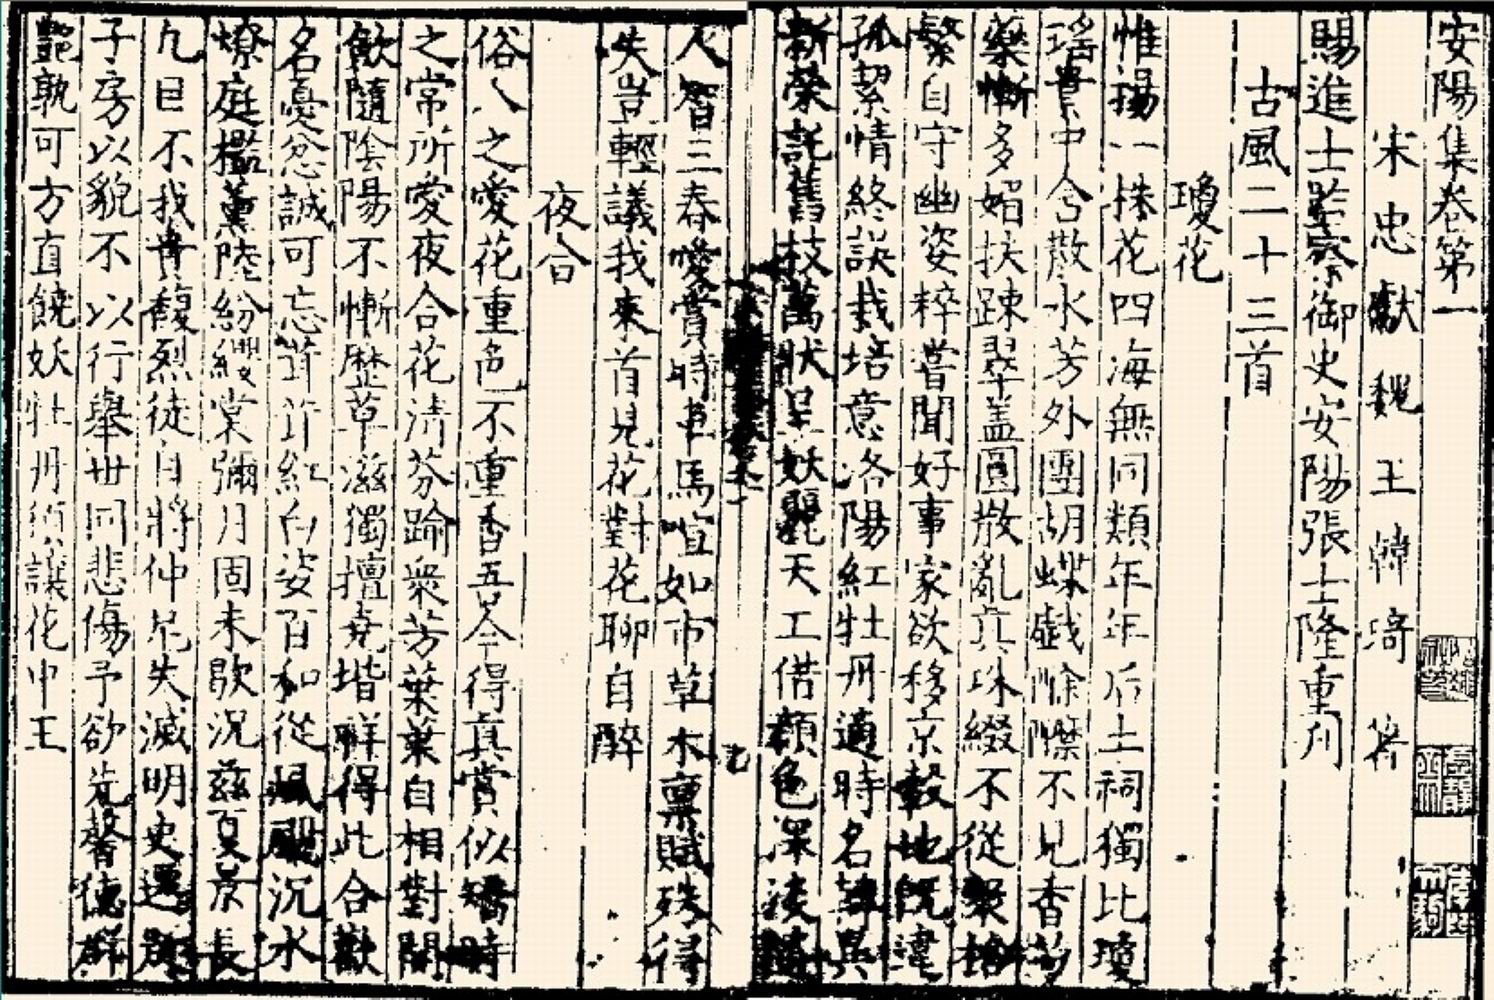 安陽集卷第一
宋忠獻魏王韓琦著
賜進士監察御史安陽張士隆重刋
古風二十三首
瓊花
惟揚一株花四海無同類年年后土祠獨比瓊
瑤貴中含散水芳外團胡蝶戲酴醿不見香芍
藥慚多媚扶踈翠蓋圓散亂真珠綴不從衆格
繁自守幽姿粹嘗聞好事家欲移京轂地旣違
孤潔情終誤栽培意洛陽紅牡丹適時名轉異
新榮託舊枝萬狀呈妖麗天工借顔色深淺隨
人智三春愛賞時車馬喧如市草木稟賦殊得
失豈輕議我來首見花對花聊自醉
夜合
俗人之愛花重色不重香吾今得真賞似矯時
之常所愛夜合花清芬踰衆芳葉葉自相對開
歛隨陰陽不慚歷草滋獨擅堯堦祥得此合歡
名憂忿誠可忘茸茸紅白姿百和從風颺沉水
燎庭檻薰陸紛纓裳彌月固未歇況兹夏景長
凡目不我貴馥烈徒自將仲尼失滅明史遷疑
子房以貌不以行舉世同悲傷予欲先馨德群
艷孰可方直饒妖牡丹須讓花中王